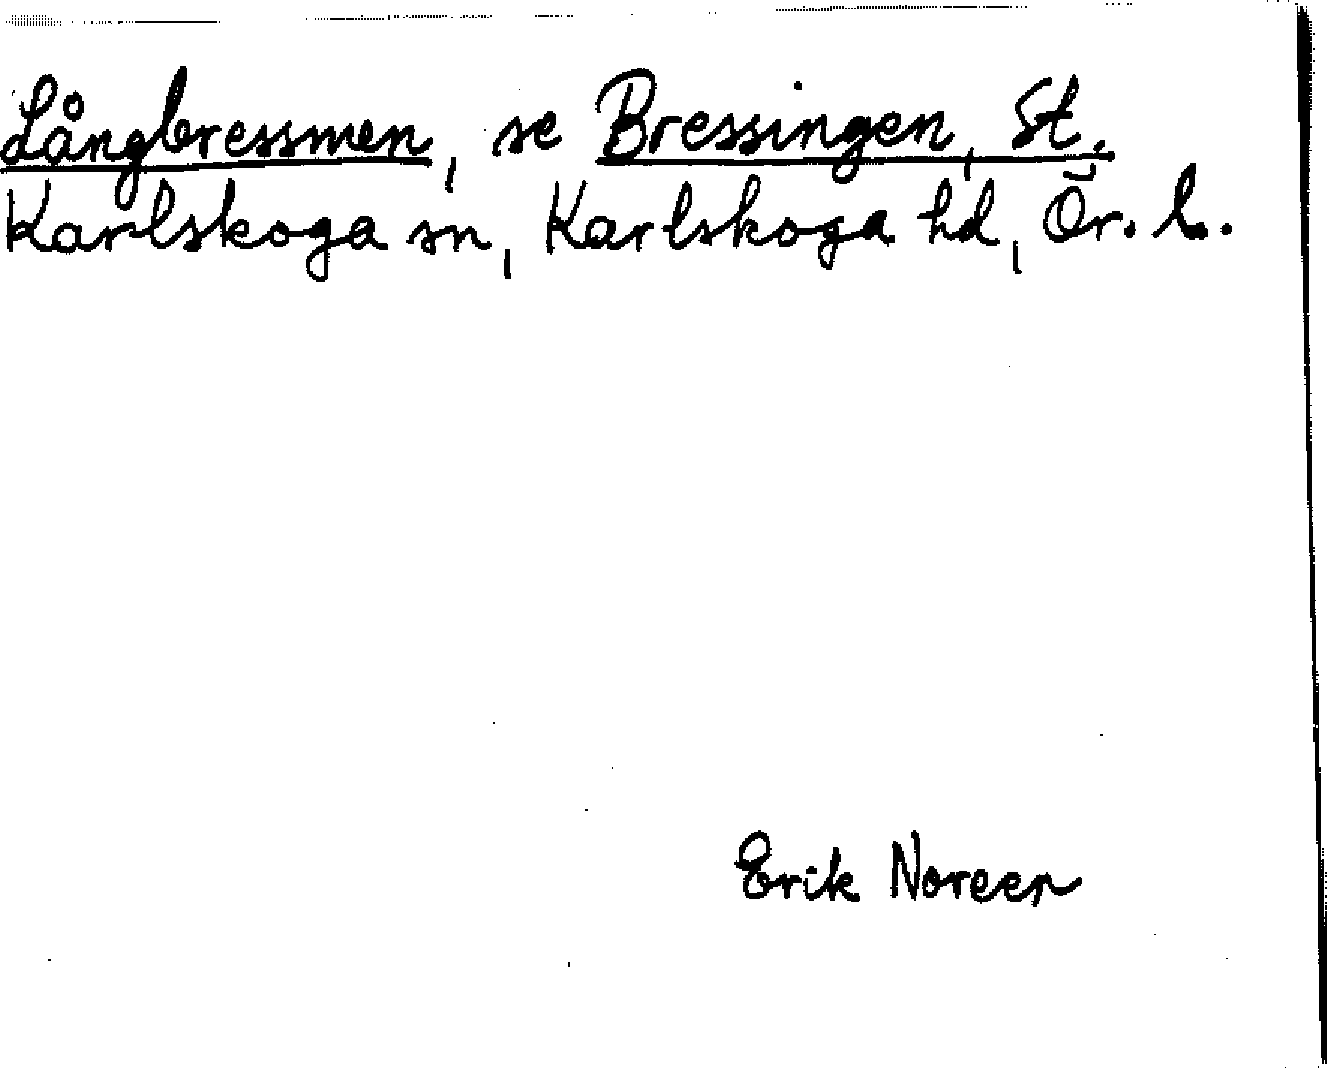 Långbressmen, se Bressingen, St.
Karlskoga sn, Karlskoga hd, Ör. l.
Erik Noreen